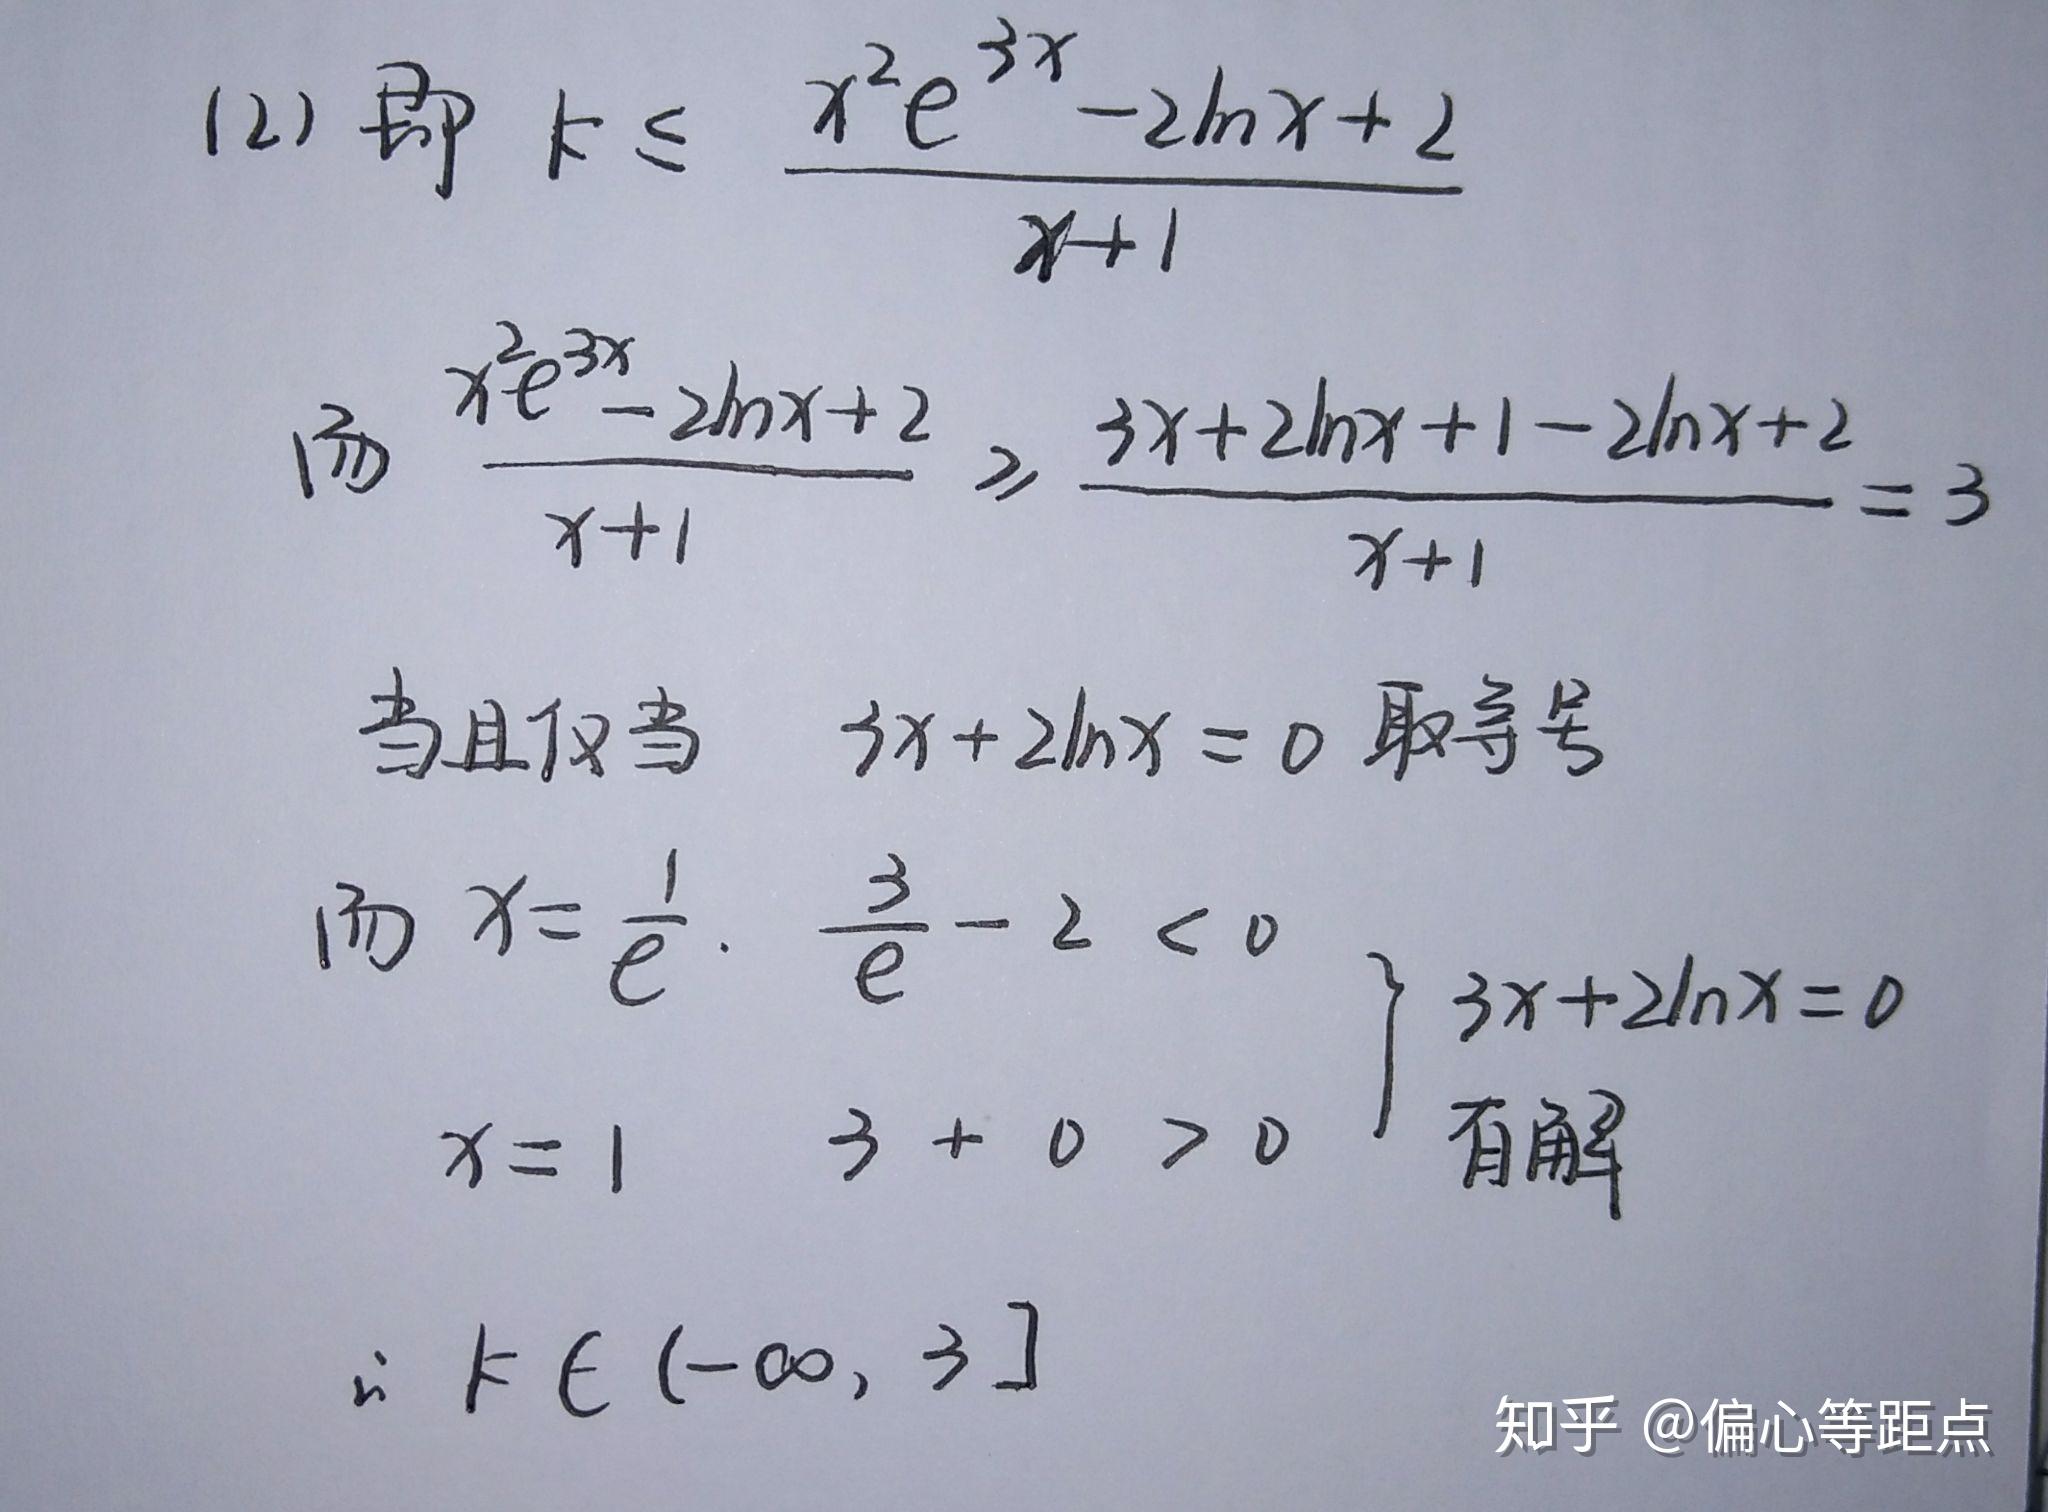 (2) 即 k ≤ \frac{x^2e^{3x}-2lnx+2}{x+1}
而 \frac{x^2e^{3x}-2lnx+2}{x+1} ≥ \frac{3x+2lnx+1-2lnx+2}{x+1} = 3
当且仅当 3x+2lnx=0 取等号
而 x=\frac{1}{e}. \frac{3}{e}-2<0
x=1 3+0>0 } 3x+2lnx=0 有解
∴ k∈(-∞, 3]
知乎 @偏心等距点